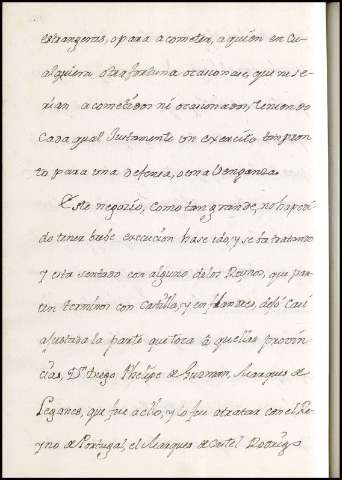 estrangeros, o para acometer, a quien en cu
alquiera otra fortuna ocasionase, que ni se
rian acometidos ni ocasionados, teniendo
cada qual Juntamente un exercito tan pron
to para una defensa, o una Venganza.
Este negozio, como tan grande, no ha podi
do tener brebe execucion hase ido, y se ba tratando
y esta sentado con alguno de los Reynos, que par
ten terminos con Castilla; y en flandes, dejó Casi
ajustada la parte que toca á quellas provin
cias, Dn Diego Phelipe de Guzman, Marques de
Leganes, que fue a ello; y lo fue a tratar con el Re
yno de Portugal, el Marques de Castel Rodrigo